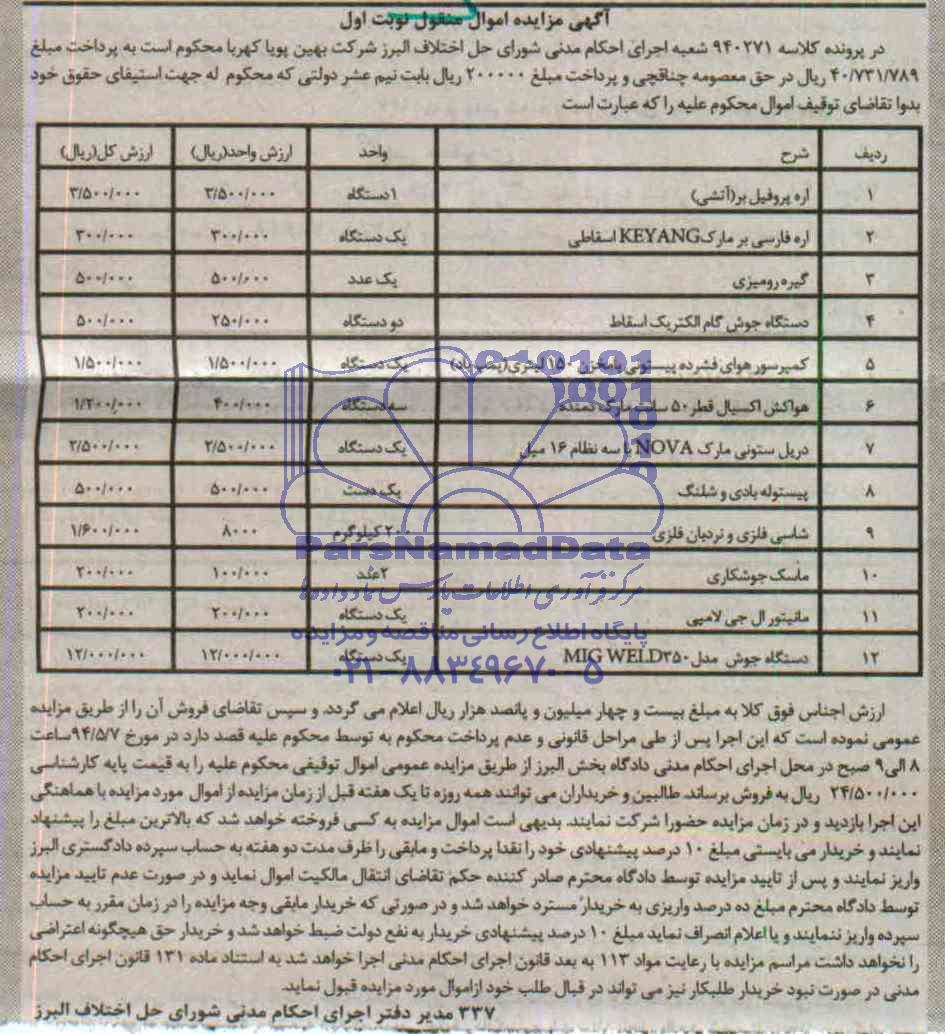 آگهی مزایده اموال منقول نوبت اول
در پرونده کلاسه ۹۴۰۲۷۱ شعبه اجرای احکام مدنی شورای حل اختلاف البرز شرکت بهین پویا کهربا محکوم است به پرداخت مبلغ
۴۰/۷۳۱/۷۸۹ ریال در حق معصومه چناقچی و پرداخت مبلغ ۲۰۰۰۰۰۰ ریال بابت نیم عشر دولتی که محکوم له جهت استیفای حقوق خود
بدوا تقاضای توقیف اموال محکوم علیه را که عبارت است
ردیف شرح واحد ارزش واحد(ریال) ارزش کل(ریال)
۱ اره پروفیل بر(آتشی) ۱دستگاه ۳/۵۰۰/۰۰۰ ۳/۵۰۰/۰۰۰
۲ اره فارسی بر مارک KEYANG اسقاطی یک دستگاه ۳۰۰/۰۰۰ ۳۰۰/۰۰۰
۳ گیره رومیزی یک عدد ۵۰۰/۰۰۰ ۵۰۰/۰۰۰
۴ دستگاه جوش گام الکتریک اسقاط دو دستگاه ۲۵۰/۰۰۰ ۵۰۰/۰۰۰
۵ کمپرسور هوای فشرده پیستونی بامخزن ۱۵۰ لیتری یک دستگاه ۱/۵۰۰/۰۰۰ ۱/۵۰۰/۰۰۰
۶ هواکش اکسیال قطر ۵۰ سانت مارک دمنده سه دستگاه ۴۰۰/۰۰۰ ۱/۲۰۰/۰۰۰
۷ دریل ستونی مارک NOVA با سه نظام ۱۶ میل یک دستگاه ۲/۵۰۰/۰۰۰ ۲/۵۰۰/۰۰۰
۸ پیستوله بادی و شلنگ یک دست ۵۰۰/۰۰۰ ۵۰۰/۰۰۰
۹ شاسی فلزی و نردبان فلزی ۲۰۰ کیلوگرم ۸۰۰۰ ۱/۶۰۰/۰۰۰
۱۰ ماسک جوشکاری ۲عدد ۱۰۰/۰۰۰ ۲۰۰/۰۰۰
۱۱ مانیتور ال جی لامپی یک دستگاه ۲۰۰/۰۰۰ ۲۰۰/۰۰۰
۱۲ دستگاه جوش مدل MIG WELD۳۵۰ یک دستگاه ۱۲/۰۰۰/۰۰۰ ۱۲/۰۰۰/۰۰۰
ParsNamadData
مرکز فرآوری اطلاعات پارس نماد داده ها
پایگاه اطلاع رسانی مناقصه و مزایده
۰۲۱-۸۸۳۴۹۶۷۰-۵
ارزش اجناس فوق کلا به مبلغ بیست و چهار میلیون و پانصد هزار ریال اعلام می گردد. و سپس تقاضای فروش آن را از طریق مزایده
عمومی نموده است که این اجرا پس از طی مراحل قانونی و عدم پرداخت محکوم به توسط محکوم علیه قصد دارد در مورخ ۹۴/۵/۷ ساعت
۸ الی ۹ صبح در محل اجرای احکام مدنی دادگاه بخش البرز از طریق مزایده عمومی اموال توقیفی محکوم علیه را به قیمت پایه کارشناسی
۲۴/۵۰۰/۰۰۰ ریال به فروش برساند. طالبین و خریداران می توانند همه روزه تا یک هفته قبل از زمان مزایده از اموال مورد مزایده با هماهنگی
این اجرا بازدید و در زمان مزایده حضورا شرکت نمایند. بدیهی است اموال مزایده به کسی فروخته خواهد شد که بالاترین مبلغ را پیشنهاد
نمایند و خریدار می بایستی مبلغ ۱۰ درصد پیشنهادی خود را نقدا پرداخت و مابقی را ظرف مدت دو هفته به حساب سپرده دادگستری البرز
واریز نمایند و پس از تایید مزایده توسط دادگاه محترم صادر کننده حکم تقاضای انتقال مالکیت اموال نماید و در صورت عدم تایید مزایده
توسط دادگاه محترم مبلغ ده درصد واریزی به خریدار مسترد خواهد شد و در صورتی که خریدار مابقی وجه مزایده را در زمان مقرر به حساب
سپرده واریز ننمایند و یا اعلام انصراف نماید مبلغ ۱۰ درصد پیشنهادی خریدار به نفع دولت ضبط خواهد شد و خریدار حق هیچگونه اعتراضی
را نخواهد داشت مراسم مزایده با رعایت مواد ۱۱۳ به بعد قانون اجرای احکام مدنی اجرا خواهد شد به استناد ماده ۱۳۱ قانون اجرای احکام
مدنی در صورت نبود خریدار طلبکار نیز می تواند در قبال طلب خود ازاموال مورد مزایده قبول نماید.
۳۳۷ مدیر دفتر اجرای احکام مدنی شورای حل اختلاف البرز